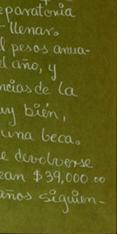 eparatoria
llenar.
l pesos anua-
el año, y
ncias de la
uy bién,
una beca.
e devolverse
ean $39,000.00
años siguien-